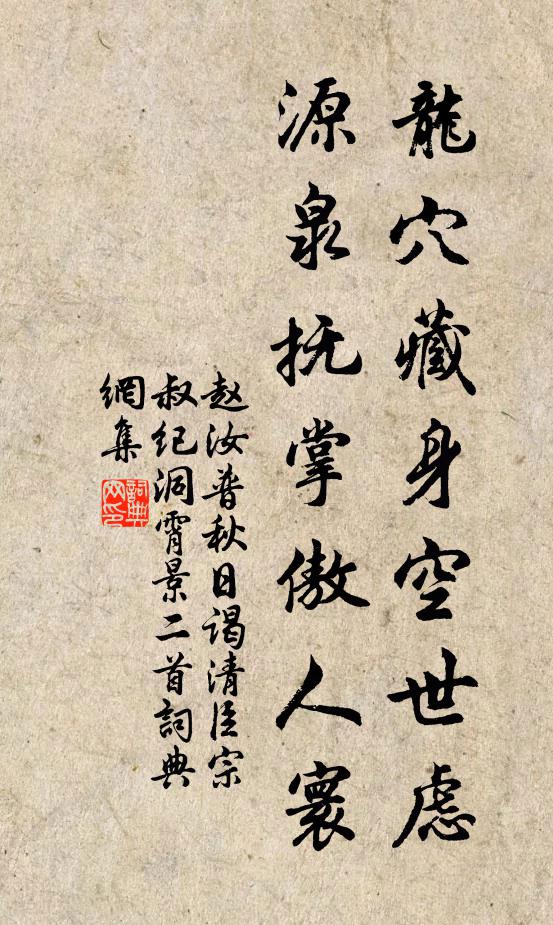 龍穴藏身空世慮
源泉抚掌傲人寰
赵汝普秋日谒清臣宗
叔纪洞霄景二首詞典
網集
詞典
网印